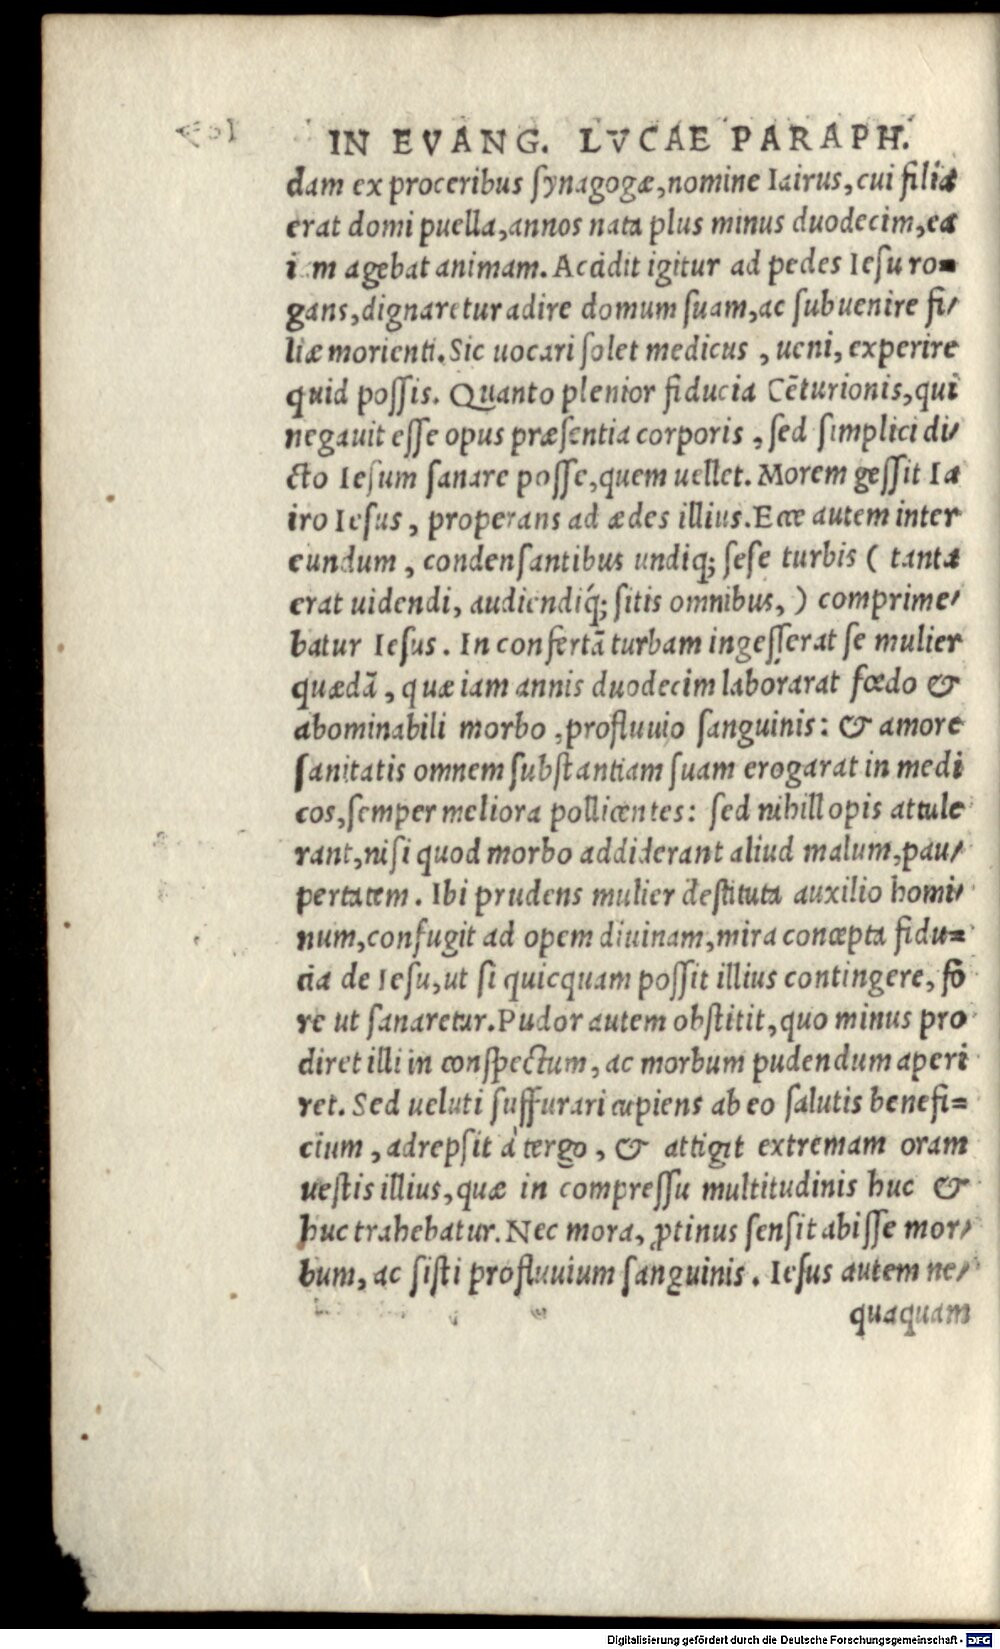 IN EVANG. LVCAE PARAPH.
dam ex proceribus synagogæ, nomine Iairus, cui filia
erat domi puella, annos nata plus minus duodecim, ea
iam agebat animam. Accidit igitur ad pedes Iesu ro-
gans, dignaretur adire domum suam, ac subuenire fi-
liæ morienti. Sic uocari solet medicus, ueni, experire
quid possis. Quanto plenior fiducia Cēturionis, qui
negauit esse opus præsentia corporis, sed simplici di-
cto Iesum sanare posse, quem uellet. Morem gessit Ia
iro Iesus, properans ad ædes illius. Ecce autem inter
eundum, condensantibus undiq; sese turbis ( tanta
erat uidendi, audiendíq; sitis omnibus, ) comprime-
batur Iesus. In confertā turbam ingesserat se mulier
quædā, quæ iam annis duodecim laborarat fœdo &
abominabili morbo, profluuio sanguinis: & amore
sanitatis omnem substantiam suam erogarat in medi
cos, semper meliora pollicentes: sed nihil opis attule
rant, nisi quod morbo addiderant aliud malum, pau-
pertatem. Ibi prudens mulier destituta auxilio homi-
num, confugit ad opem diuinam, mira concepta fidu-
cia de Iesu, ut si quicquam possit illius contingere, fo
re ut sanaretur. Pudor autem obstitit, quo minus pro
diret illi in conspectum, ac morbum pudendum aperi
ret. Sed ueluti suffurari cupiens ab eo salutis benefi-
cium, adrepsit à tergo, & attigit extremam oram
uestis illius, quæ in compressu multitudinis huc &
huc trahebatur. Nec mora, ꝓtinus sensit abisse mor-
bum, ac sisti profluuium sanguinis. Iesus autem ne-
quaquam
Digitalisierung gefördert durch die Deutsche Forschungsgemeinschaft - DFG